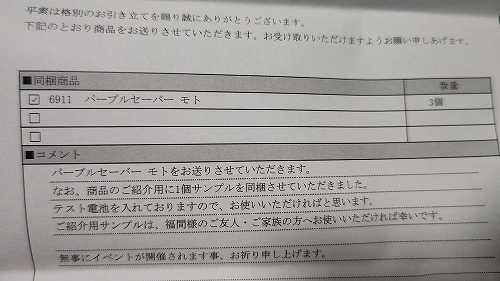 平素は格別のお引き立てを賜り誠にありがとうございます。
下記のとおり商品をお送りさせていただきます。お受け取りいただけますようお願い申しあげます。
■同梱商品 数量
☑ 6911 パープルセーバー モト 3個
□
□
■コメント
パープルセーバー モトをお送りさせていただきます。
なお、商品のご紹介用に1個サンプルを同梱させていただきました。
テスト電池を入れておりますので、お使いいただければと思います。
ご紹介用サンプルは、福間様のご友人・ご家族の方へお使いいただければ幸いです。
無事にイベントが開催されます事、お祈り申し上げます。